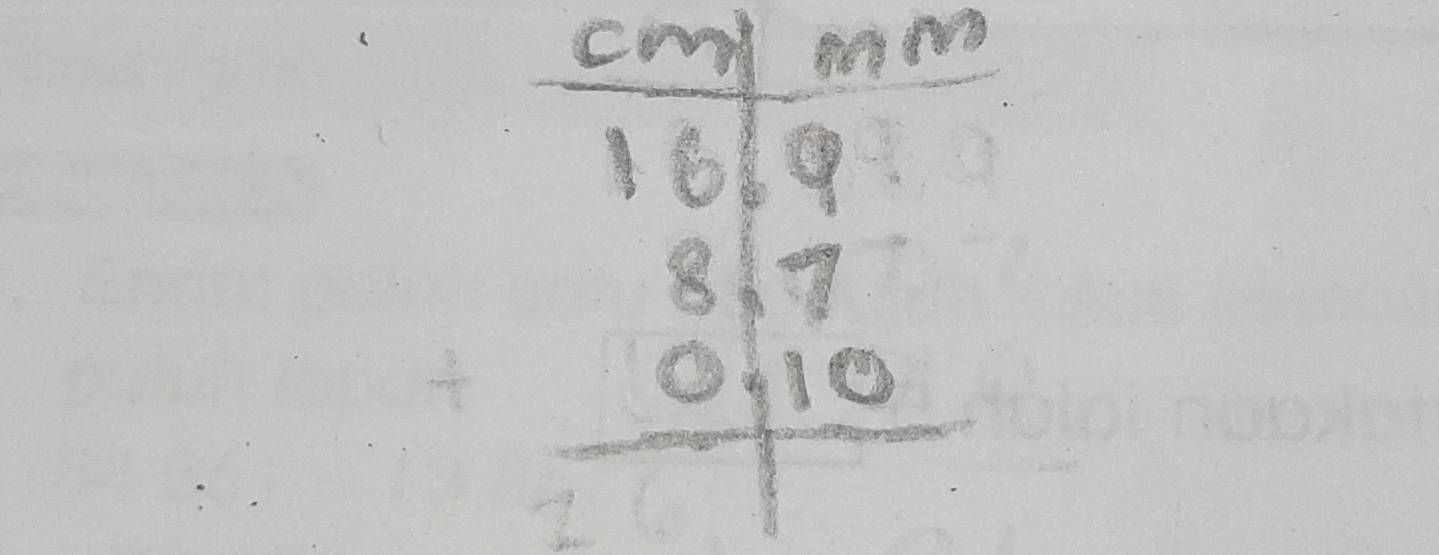 cm mm
16.9
8.7
+ 0.10